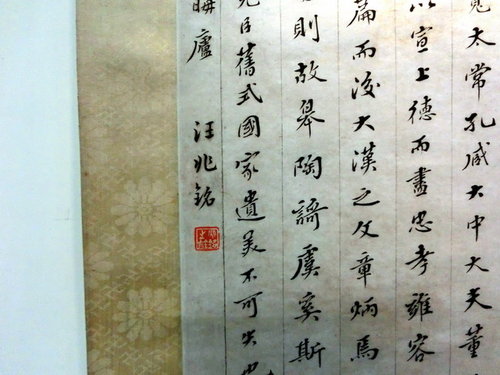 太常孔臧大中大夫董
以宣上德而盡忠孝雍容
篇而後大漢之文章炳焉
則故皋陶謌虞奚斯
臣舊式國家遺美不可失也
晦廬
汪兆銘